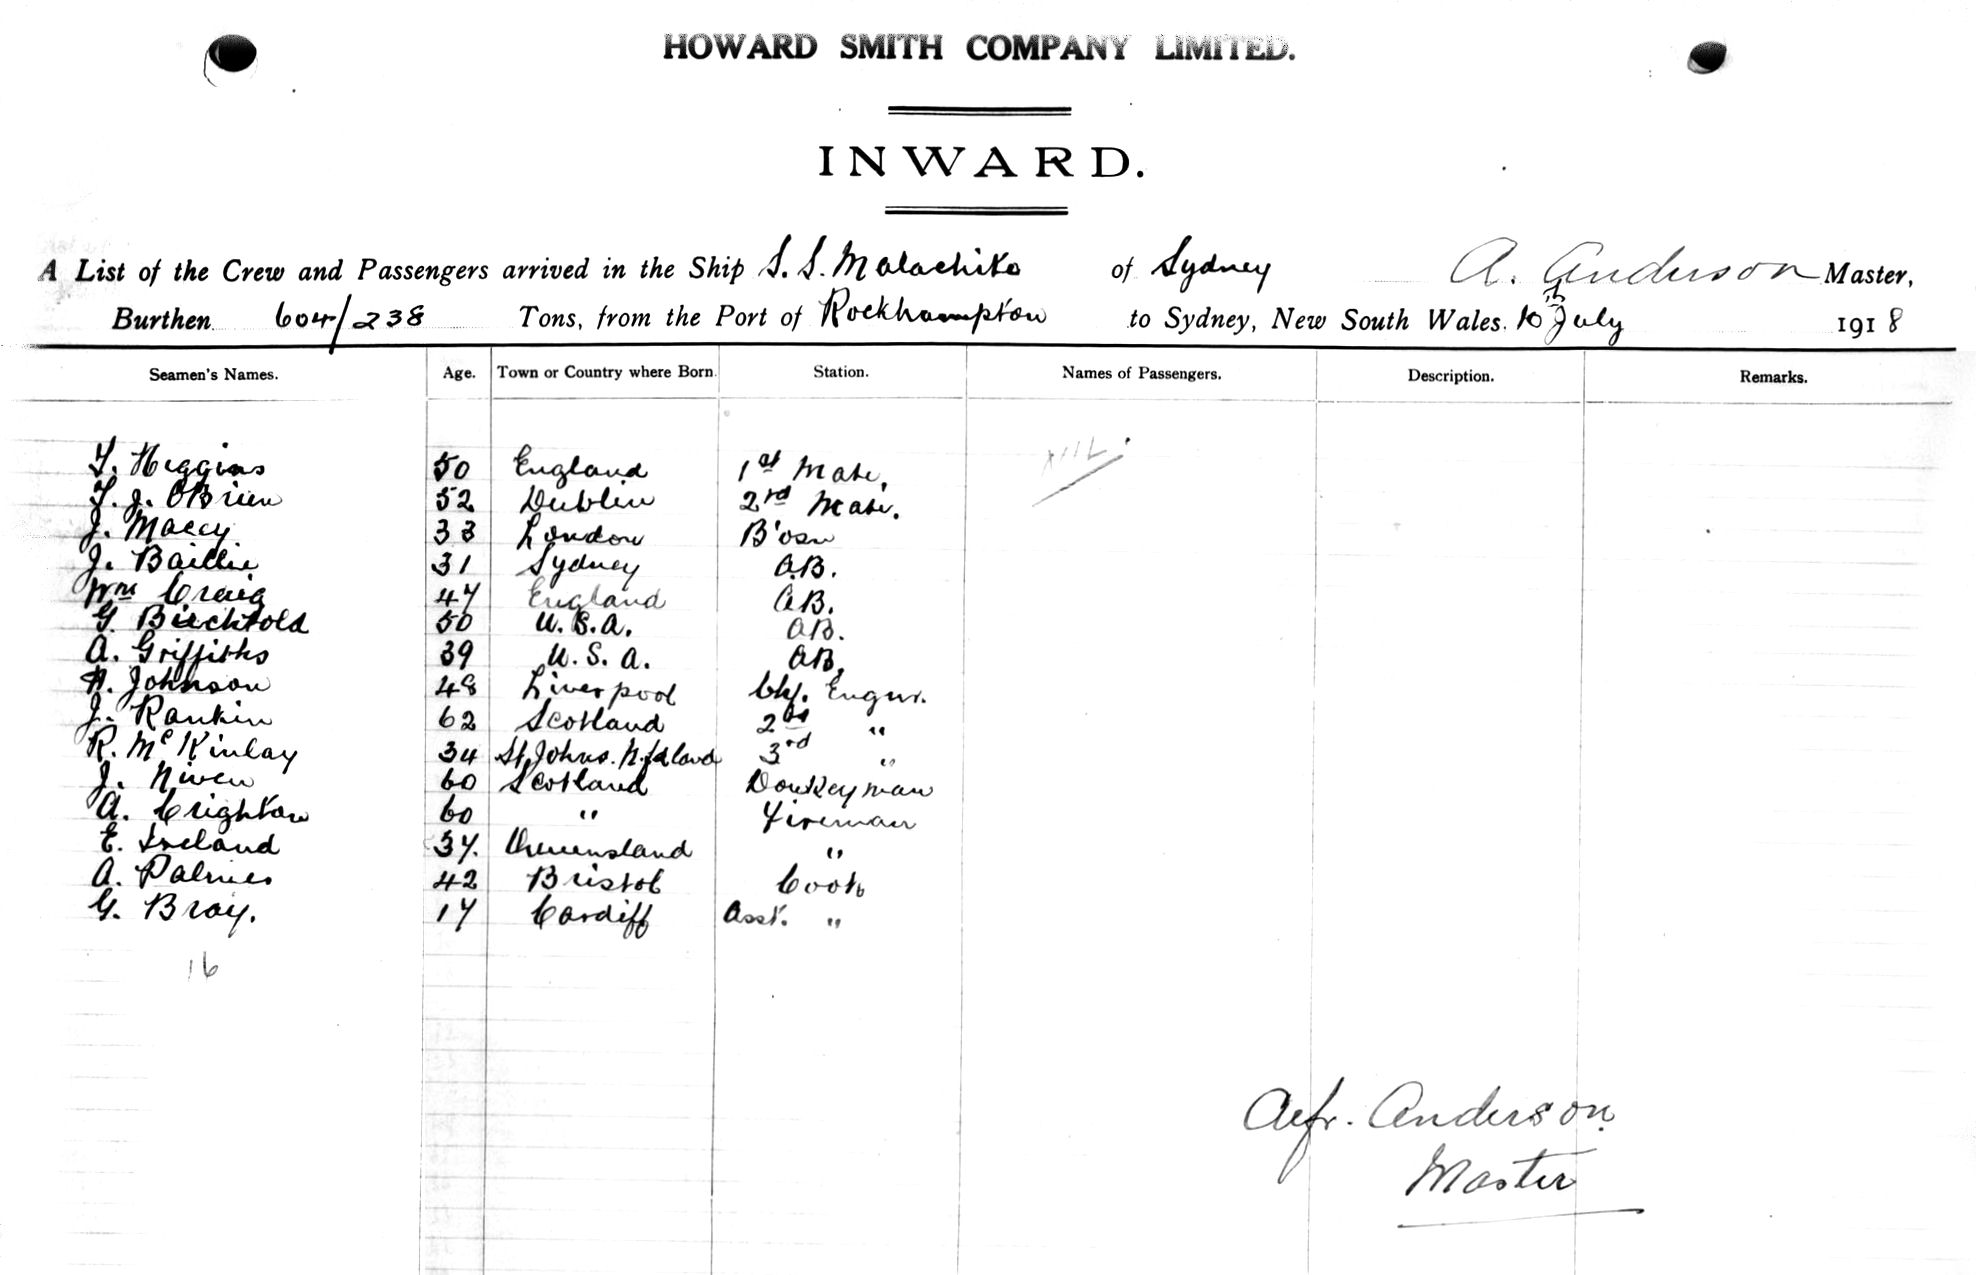 HOWARD SMITH COMPANY LIMITED.
INWARD.
A List of the Crew and Passengers arrived in the Ship S.S. Malachite of Sydney A. Anderson Master,
Burthen 604/238 Tons, from the Port of Rockhampton to Sydney, New South Wales. 10th July 1918
Seamen's Names. Age. Town or Country where Born. Station. Names of Passengers. Description. Remarks.
T. Higgins 50 England 1st Mate, NIL.
T. J. O'Brien 52 Dublin 2nd Mate.
J. Maccy 33 London B'osn
J. Baillie 31 Sydney A.B.
Wm Craig 47 England A.B.
G. Birchtold 50 U.S.A. AB.
A. Griffiths 39 U.S.A. AB.
A. Johnson 48 Liverpool Chf. Engnr.
J. Rankin 62 Scotland 2nd "
R. McKinlay 34 St Johns. N.fdland 3rd "
J. Niven 60 Scotland Donkeyman
A. Crighton 60 " Fireman
E. Ireland 37. Queensland "
A. Palmer 42 Bristol Cook
G. Bray. 17 Cardiff Asst. "
16
Alfr. Anderson
Master